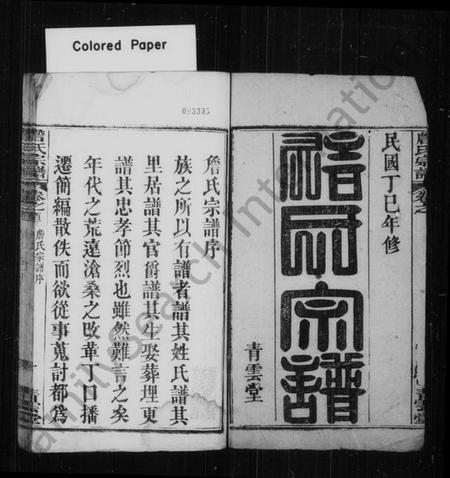 Colored Paper
083335
民國丁巳年修
詹氏宗譜
青雲堂
詹氏宗譜
詹氏宗譜序
族之所以有譜者譜其姓氏譜其
里居譜其官爵譜其生娶葬埋更
譜其忠孝節烈也雖然難言之矣
年代之荒遠滄桑之改革丁口播
遷簡編散佚而欲從事蒐討都為
詹氏宗譜
卷之首
詹氏宗譜序
一
青雲堂
FamilySearch International